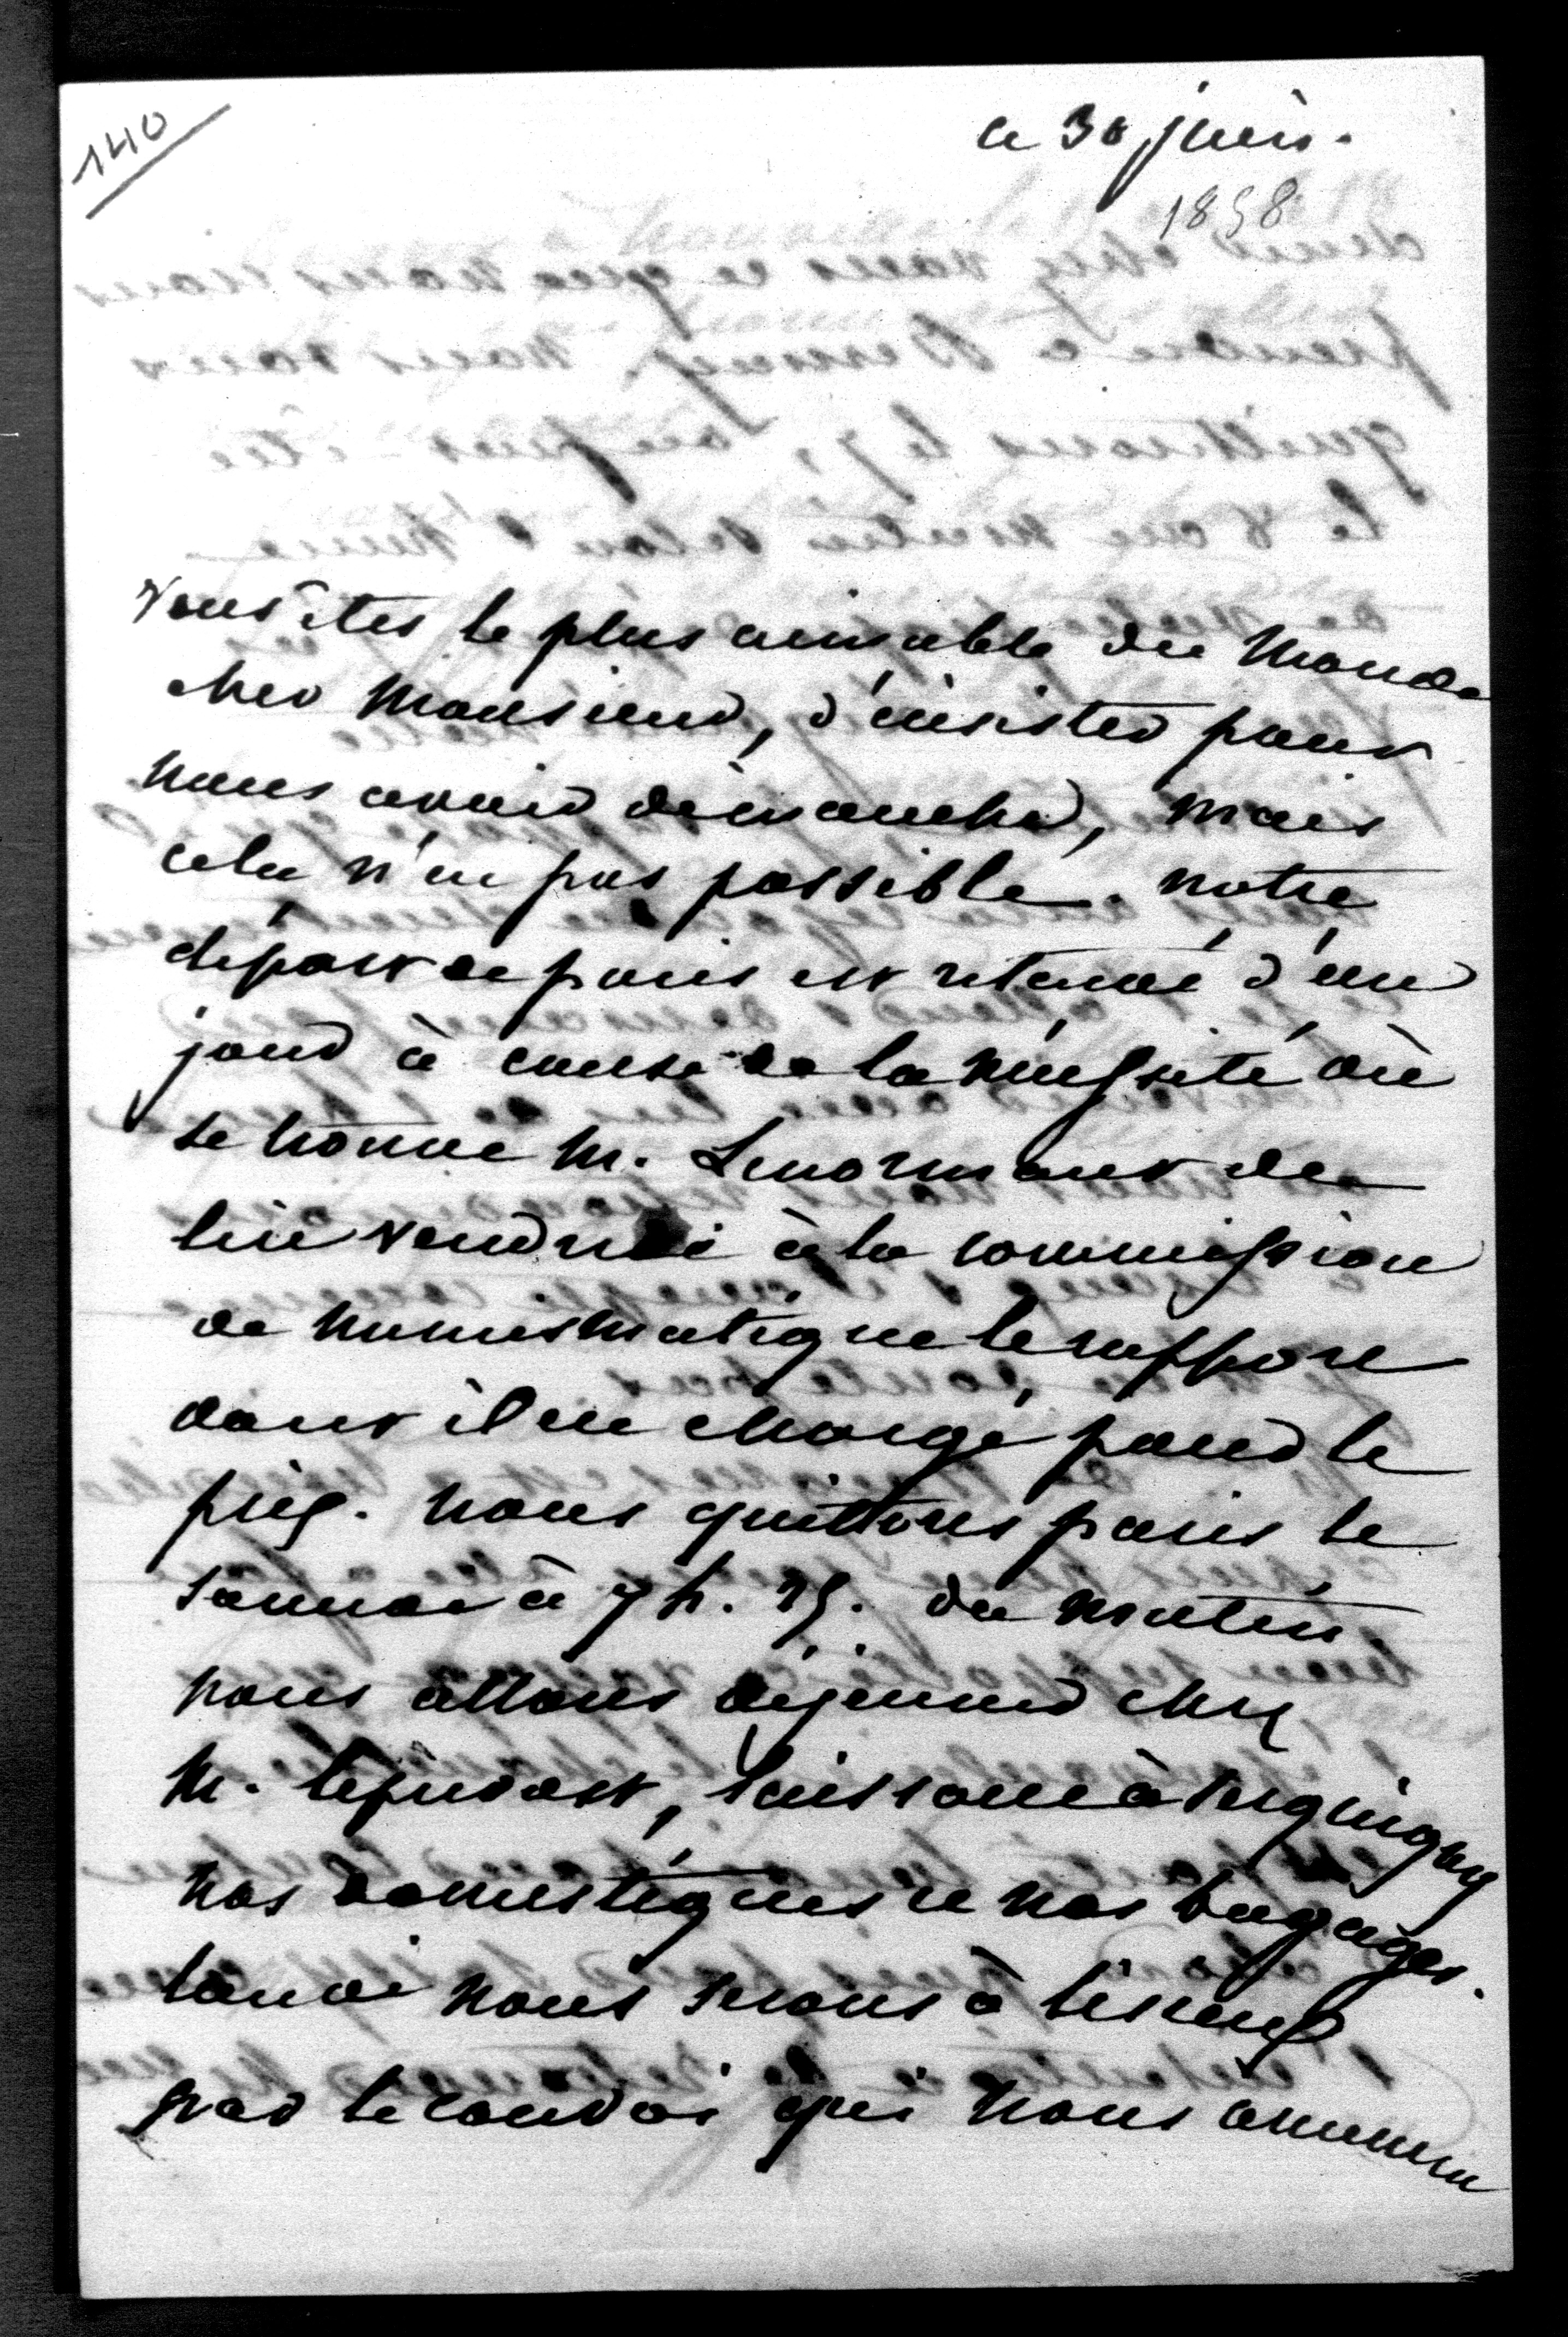 140
ce 30 juin.
1858
Vous êtes le plus aimable du monde
cher Monsieur, d'insister pour
nous avoir dimanche, mais
cela n'est pas possible. notre
départ de paris est retardé d'un
jour à cause de la nécessité où
se trouve M. Lenormant de
lire vendredi à la commission
de numismatique le rapport
dont il est chargé pour le
prix. nous quittons paris le
samedi à 7 h. 25. du matin.
nous allons déjeuner chez
M. leprevost, laissons à Serquigny
nos domestiques et nos bagages.
lundi nous serons à lisieux
par le convoi qui nous amènera